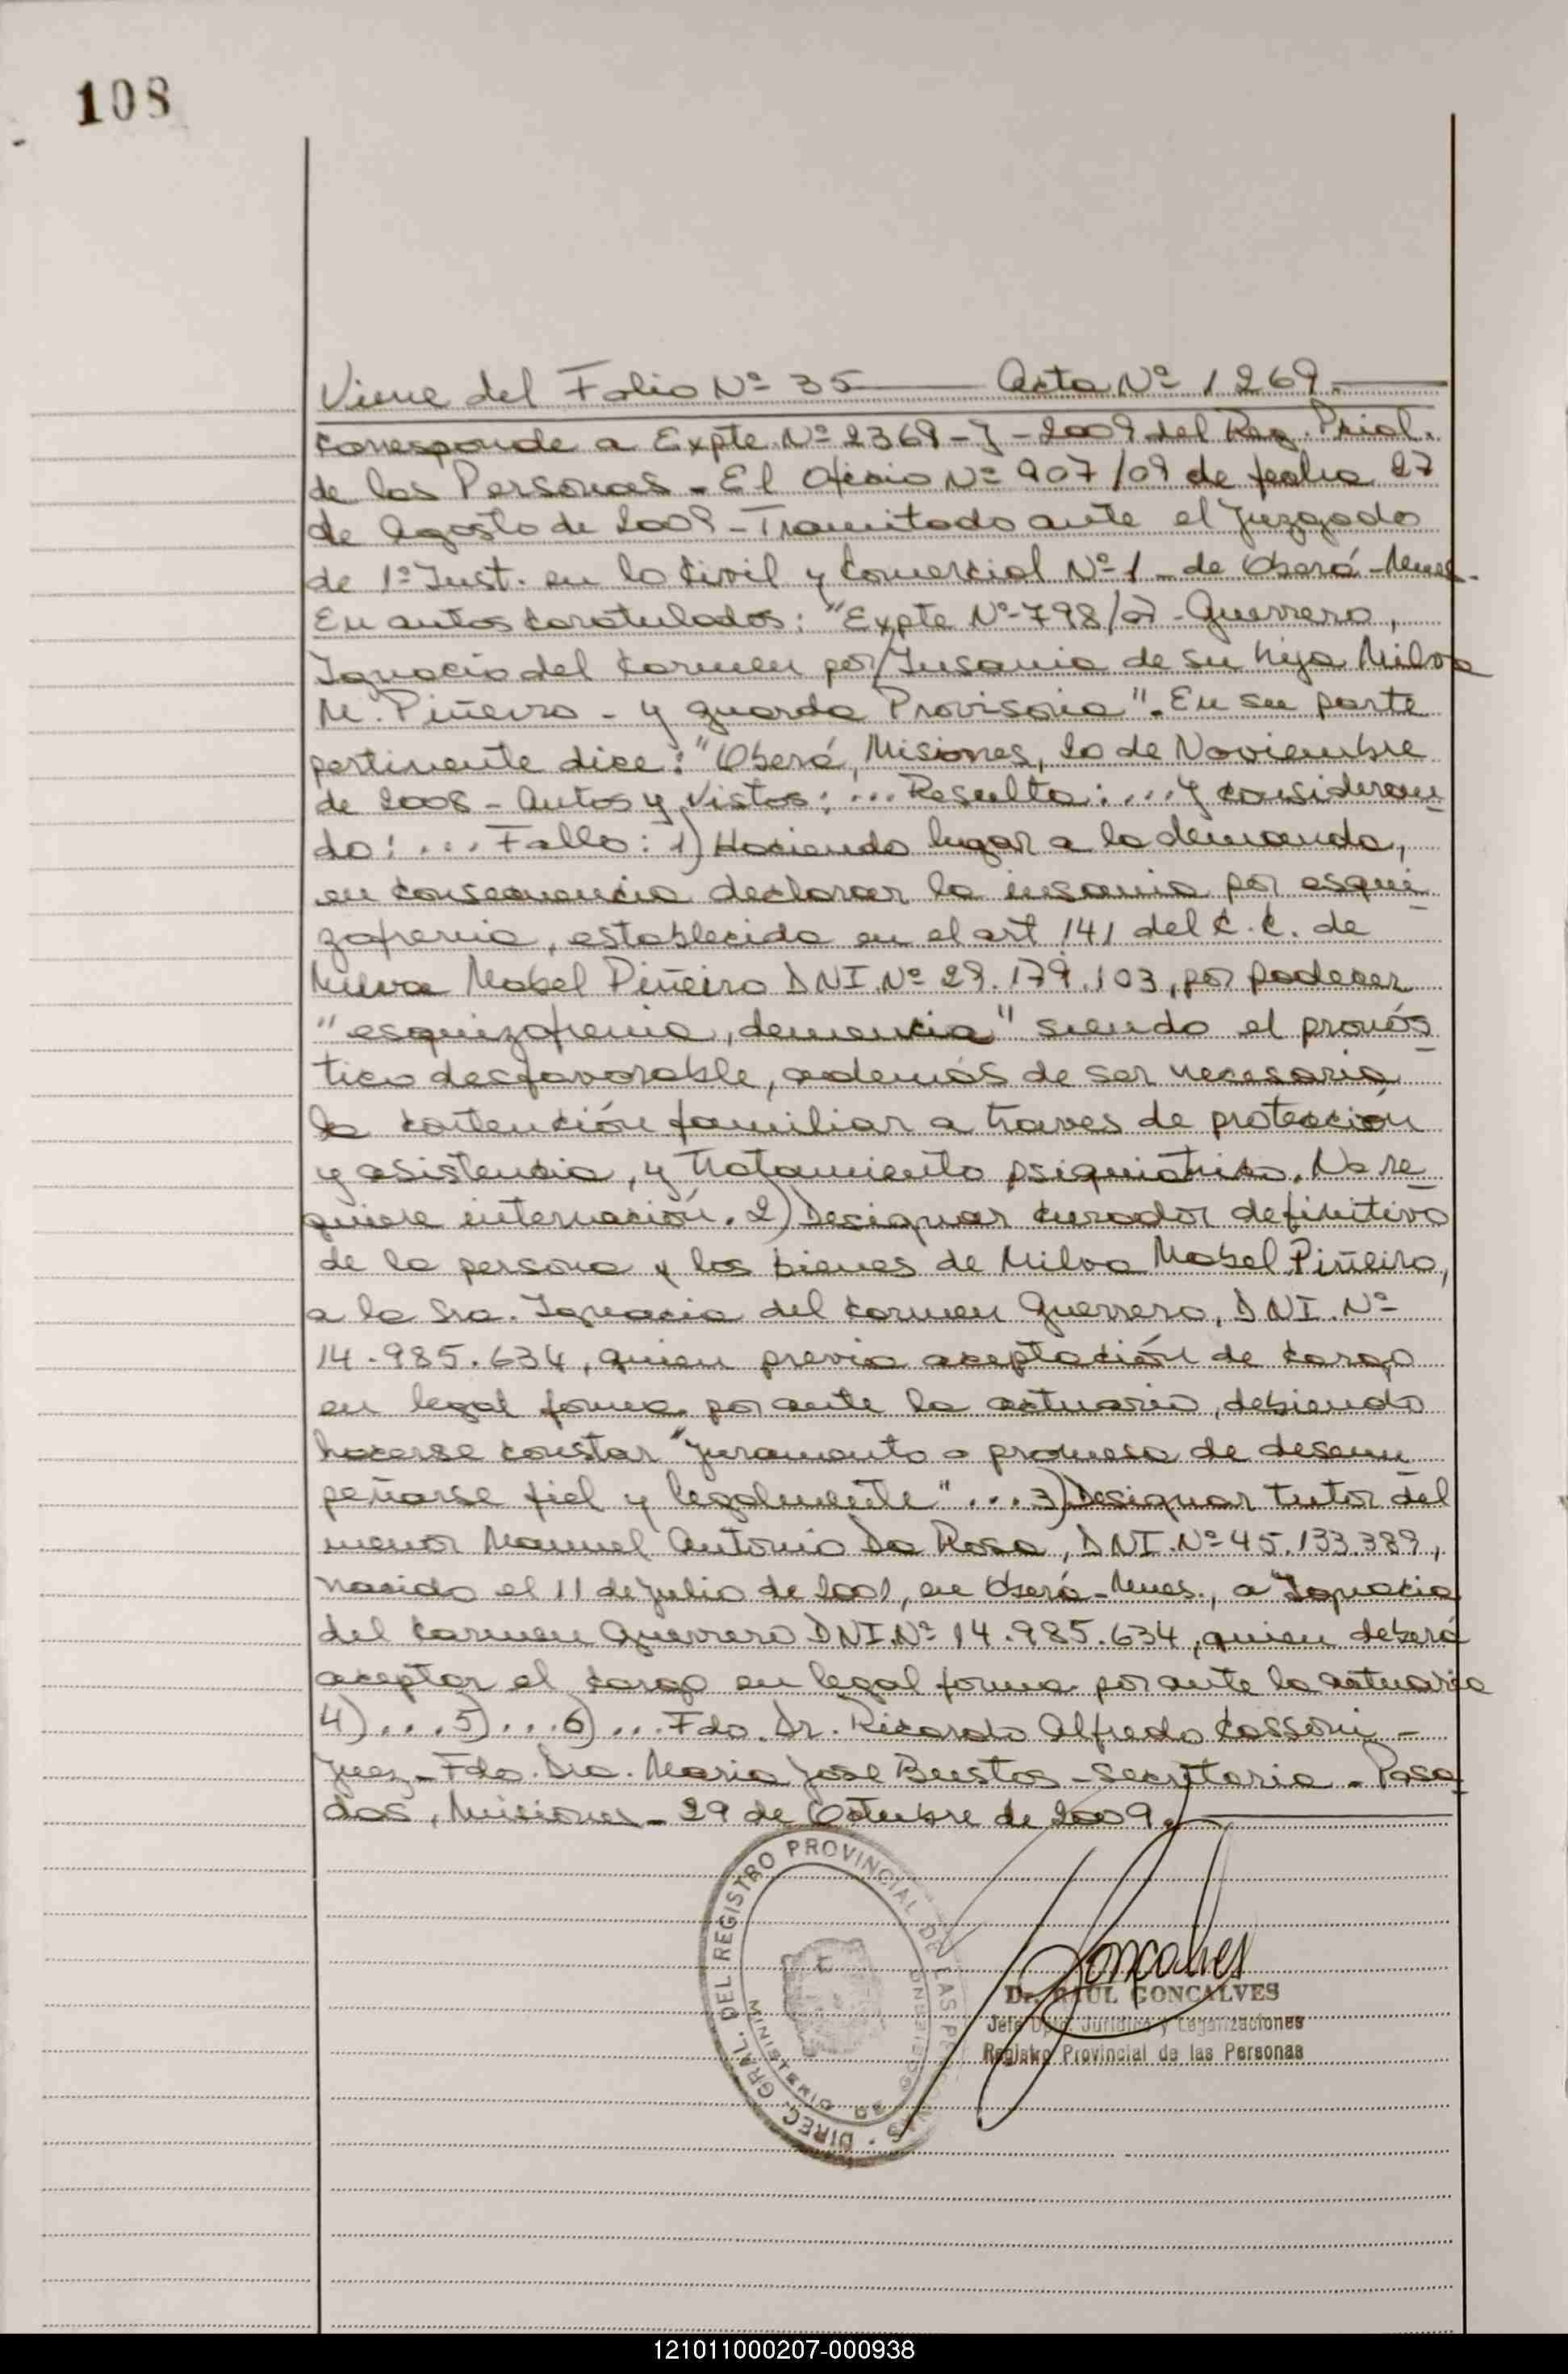 108
Viene del Folio Nº 35 — Acta Nº 1269. —
corresponde a Expte Nº 2369-J-2009 del Reg. Pcial.
de las Personas - El Oficio Nº 907/09 de fecha 27
de Agosto de 2009 - Tramitado ante el Juzgado
de 1º Inst. en lo Civil y Comercial Nº 1 - de Oberá - Mnes.
En autos caratulados: "Expte Nº 798/07 - Guerrero,
Ignacia del Carmen por/Insania de su hija Milva
M. Piñeiro - y guarda Provisoria". En su parte
pertinente dice: "Oberá, Misiones, 20 de Noviembre
de 2008 - Autos y Vistos: ... Resulta: ... Y consideran
do: ... Fallo: 1) Haciendo lugar a la demanda,
en consecuencia declarar la insania por esqui
zofrenia, establecida en el art 141 del C.C. de
Milva Mabel Piñeiro DNI. Nº 29.179.103, por padecer
"esquizofrenia, demencia" siendo el pronós
tico desfavorable, además de ser necesaria
la contención familiar a traves de protección
y asistencia, y tratamiento psiquiatrico. No re
quiere internación. 2) Designar curador definitivo
de la persona y los bienes de Milva Mabel Piñeiro,
a la Sra. Ignacia del Carmen Guerrero, DNI. Nº
14.985.634, quien previa aceptación de cargo
en legal forma por ante la actuaria, debiendo
hacerse constar "juramento o promesa de desem
peñarse fiel y legalmente" ... 3) Designar tutor del
menor Manuel Antonio Da Rosa, DNI. Nº 45.133.389,
nacido el 11 de julio de 2001, en Oberá - Mnes., a Ignacia
del Carmen Guerrero DNI. Nº 14.985.634, quien deberá
aceptar el cargo en legal forma por ante la actuaria
4) ... 5) ... 6) ... Fdo. Dr. Ricardo Alfredo Cassoni -
Juez - Fdo. Dra. Maria Jose Bustos - Secretaria - Posa
das, Misiones - 29 de Octubre de 2009. —
DIREC. GRAL. DEL REGISTRO PROVINCIAL DE LAS PERSONAS
MINISTERIO DE GOBIERNO
Goncalves
Dr. RAUL GONCALVES
Jefe Dpto. Jurídico y Legalizaciones
Registro Provincial de las Personas
121011000207-000938